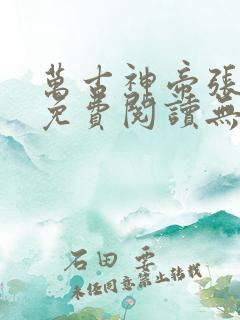 萬古神帝張
免費閱讀無
石田 要
未經同意禁止轉載